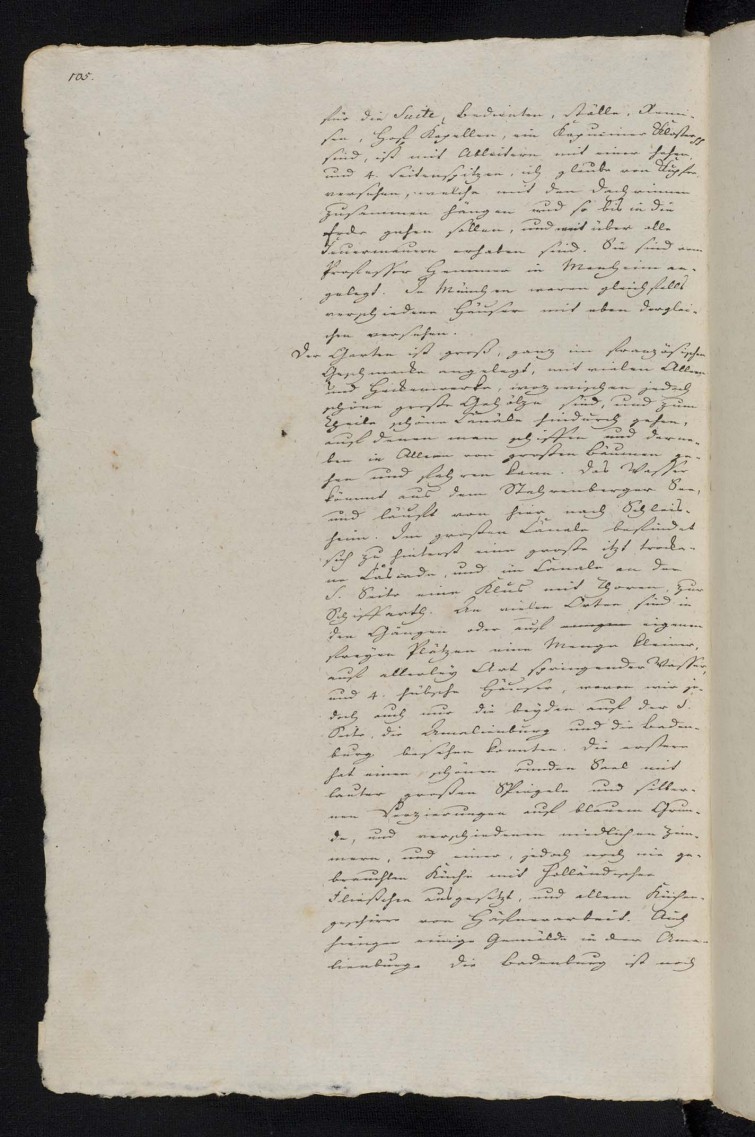 105.
für die Suite, bedienten, ställe, Remi-
sen, Hof Kapellen, ein Kapuciner Kloster
sind, ist mit Ableitern mit einer hohen
und 4. seitenspitzen, ich glaube von Kupfer
versehen, welche mit den dachrinnen
zusammen hängen und so bis in die
Erde gehen sollen, und weit über alle
Feuermauern erhaben sind. Sie sind vom
Professor Hemmer in Manheim an-
gelegt. In München waren gleichfalls
verschiedene Häuser mit eben derglei-
chen versehen.
Der Garten ist groß, ganz im französischen
Geschmacke angelegt, mit vielen Alleen
und Heckenwerke, wozwischen jedoch
schöne große Gehölze sind, und zum
Theile schöne Canäle hindurch gehen,
auf denen man schiffen und dane-
ben in Alleen von großen bäumen ge-
hen und fahren kann. Das Wasser
kömmt aus dem Stahrenberger See,
und läuft von hier nach Schleis-
heim. Im großen Canale befindet
sich zu hinterst eine große itzt trocke-
ne Cascade, und im Canale an der
S. Seite eine Klus mit Thoren, zur
Schiffarth. An vielen Orten sind in
den Gängen oder auf eigenen
freyen Plätzen eine Menge kleiner,
auf allerley Art springender Wasser,
und 4. hübsche Häuser, wovon wir je-
doch auch nur die beyden auf der S.
Seite, die Amalienburg und die Baden-
burg besehen konnten. Die erstere
hat einen schönen runden Saal mit
lauter großen Spiegeln und silber-
nen Verzierungen auf blauem Grun-
de, und verschiedenen niedlichen Zim-
mern, und einer, jedoch noch nie ge-
brauchten Küche mit Holländischen
Fließchen ausgesetzt, und allem Küchen-
geschirr von Häfnerarbeit. Auch
hiengen einige Gemälde in der Ama-
lienburg. Die Badenburg ist noch